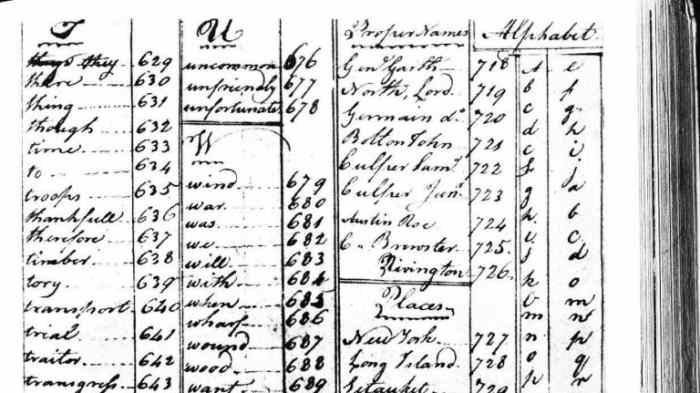 T
they 629
there 630
thing 631
though 632
time 633
to 634
troops 635
thankfull 636
therefore 637
timber 638
tory 639
transport 640
trial 641
traitor 642
transgress 643
U
uncommon 676
unfriendly 677
unfortunate 678
W
wind 679
war 680
was 681
we 682
will 683
with 684
when 685
wharf 686
wound 687
wood 688
want 689
Proper Names
Genl Garth 718
North, Lord 719
Germain do. 720
Bolton John 721
Culper Saml 722
Culper Junr 723
Austin Roe 724
C. Brewster 725
Rivington 726
Places
New York 727
Long Island 728
Setauket 729
Alphabet
a e
b f
c g
d h
e i
f j
g a
h b
i c
j d
k o
l m
m n
n p
o q
p r